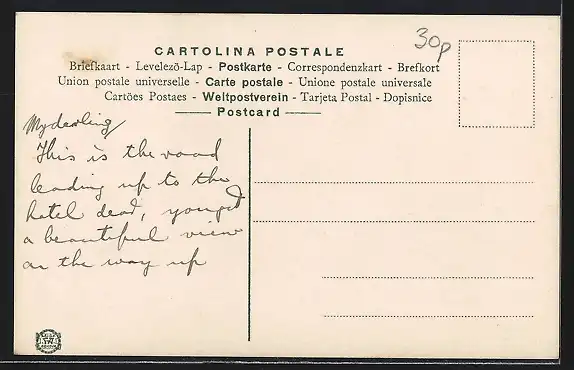 30p
CARTOLINA POSTALE
Briefkaart - Levelezö-Lap - Postkarte - Correspondenzkart - Brefkort
Union postale universelle - Carte postale - Unione postale universale
Cartões Postaes - Weltpostverein - Tarjeta Postal - Dopisnice
Postcard
My darling
This is the road
leading up to the
hotel dead, you get
a beautiful view
on the way up